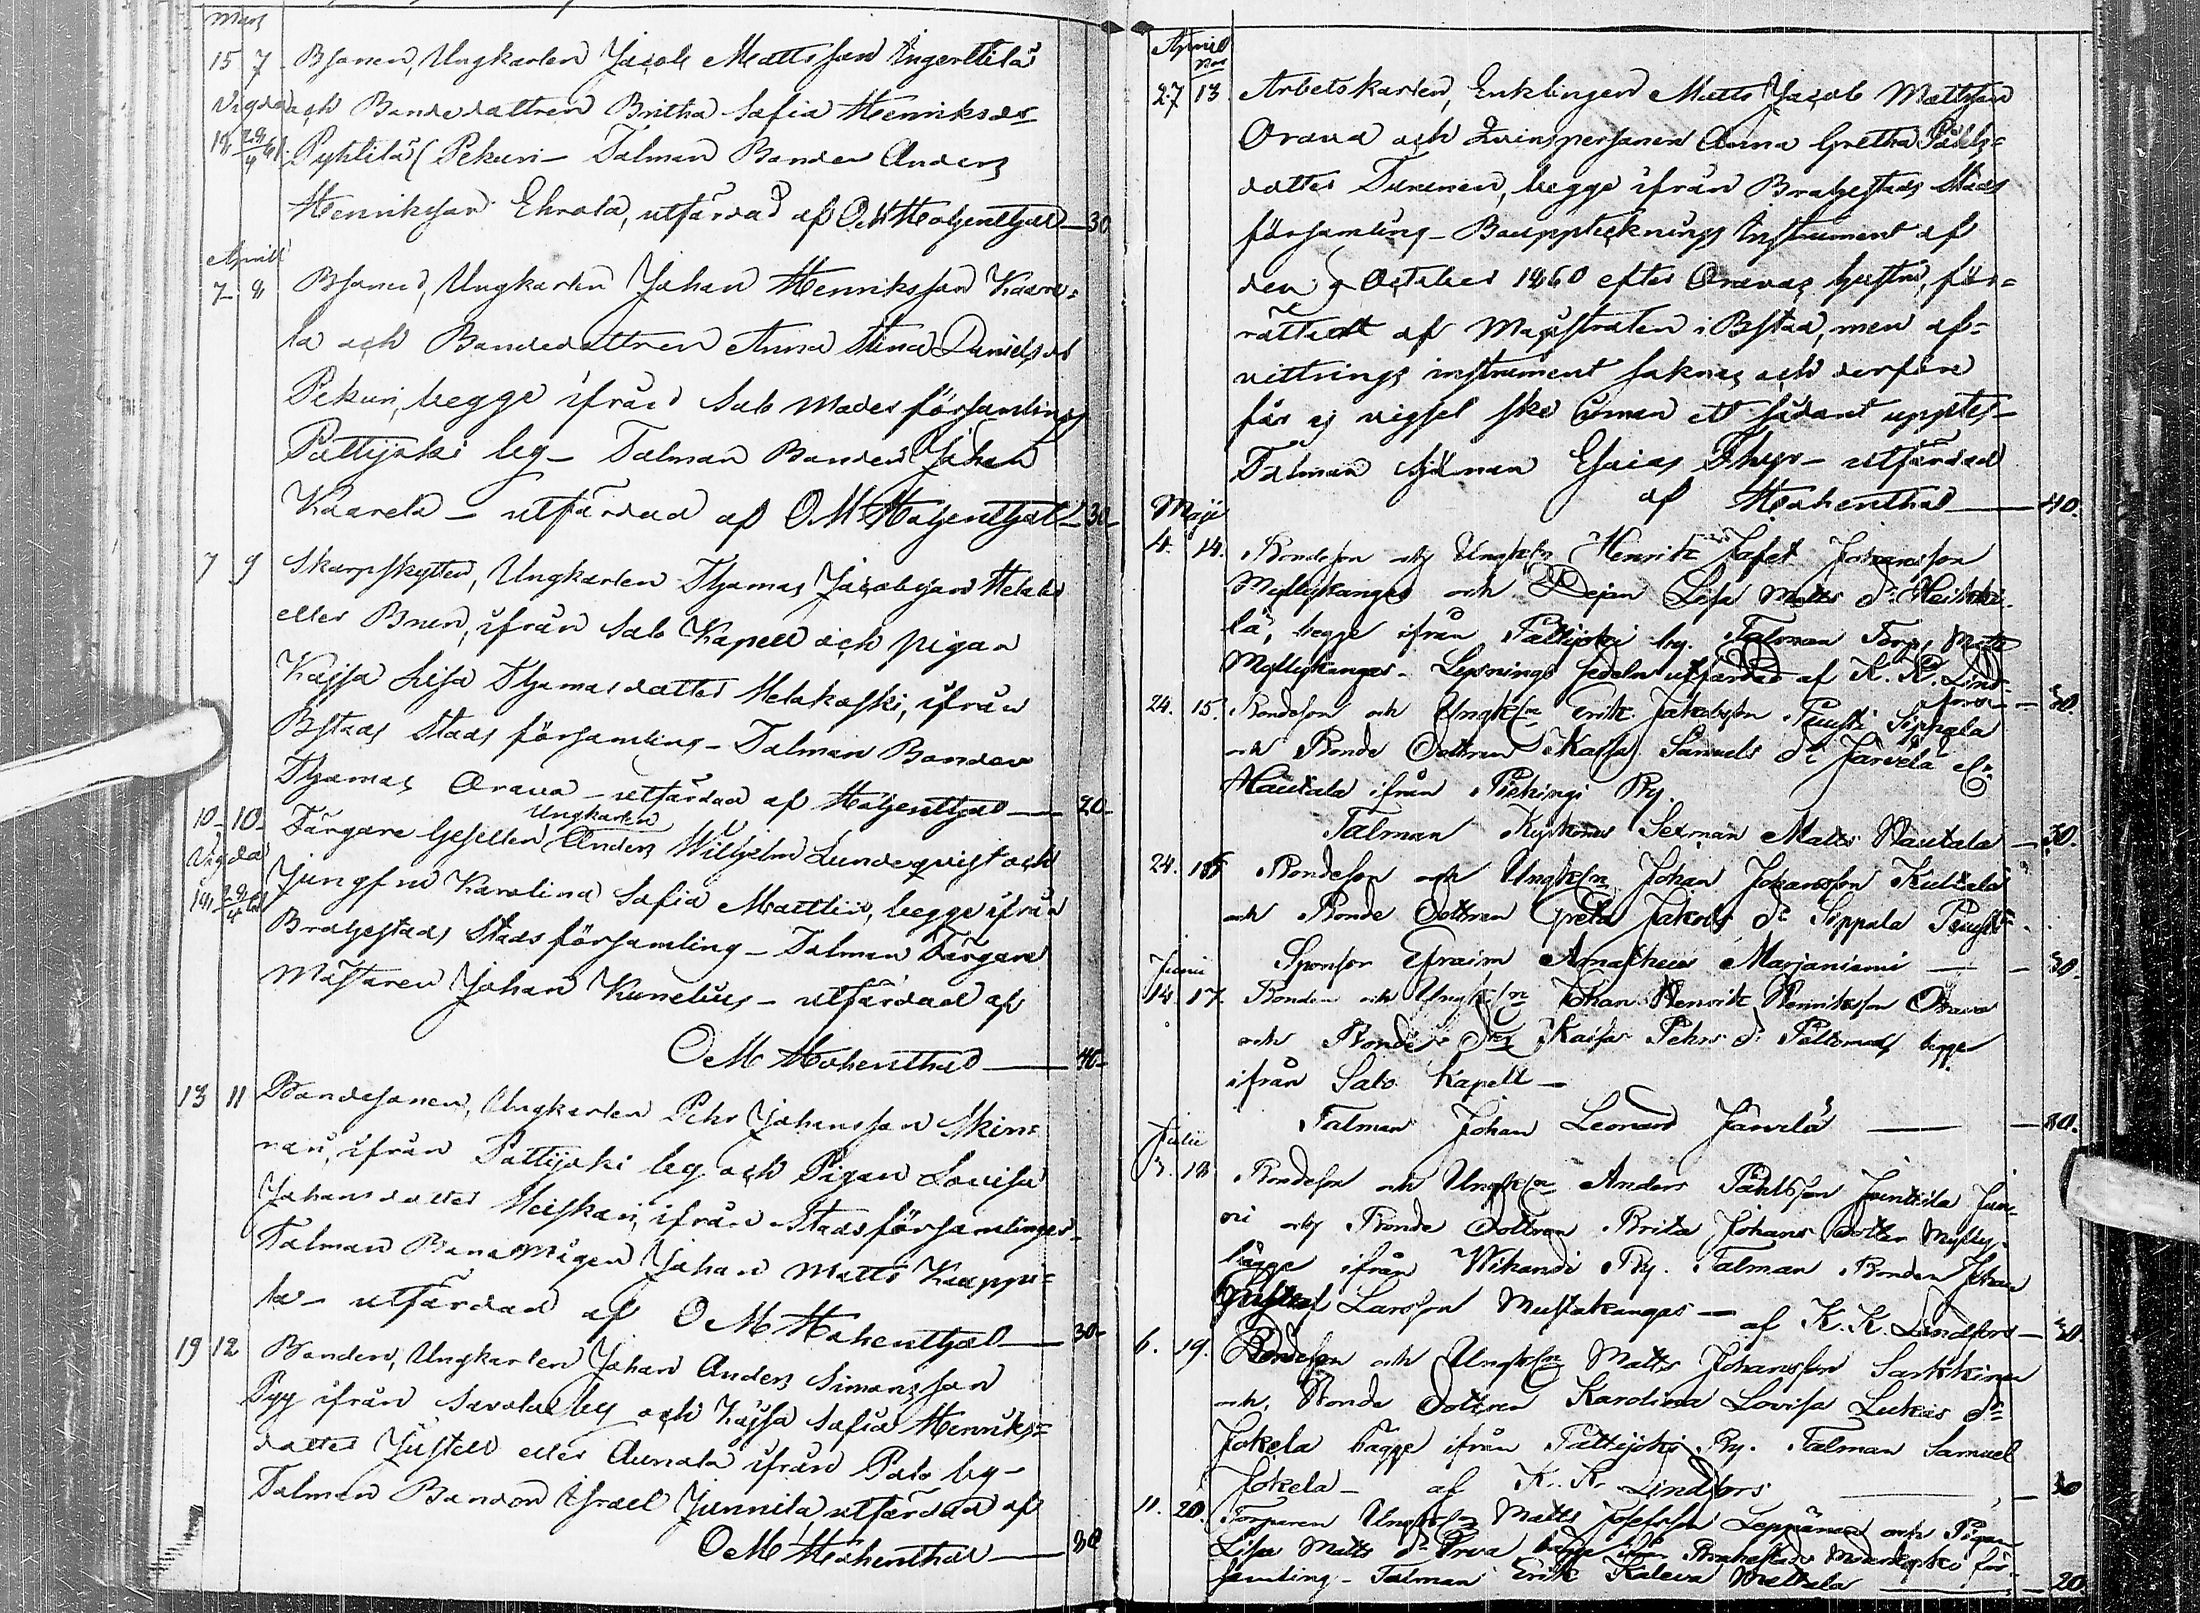 Mars
15 7 Bsonen, Ungkarlen Jacob Mattsson Ångerttilä
Vigda och Bondedottren Britha Sofia Henriksdr
18 28/4 61. Pyhtilä / Pekuri – Talman Bonden Anders
Henriksson Ehrola, utfärdad af OM Hohenthal — 30
April
7 8 Bsonen, Ungkarlen Johan Henriksson Kaare-
la och Bondedottren Anna Stina Danielsdr
Pekuri, begge ifrån Salo Moder församling
Pattijoki by – Talman Bonden Johan
Kaarela – utfärdad af OM Hohenthal — 30
7 9 Skarpskytten, Ungkarlen Thomas Jacobsson Helako
eller Brun, ifrån Salo Kapell och pigan
Kajsa Lisa Thomasdotter Melakoski, ifrån
Bstads Stads församling – Talman Bonden
Thomas Orava – utfärdad af Hohenthal — 20
10 10 Färgare Gesellen Ungkarlen Anders Wilhelm Lundeqvist och
Vigda Jungfru Karolina Sofia Mattlin, begge ifrån
18 28/4 61 Brahestads Stads församling – Talman Färgare
Mästaren Johan Kunelius – utfärdad af
OM Hohenthal — 40
13 11 Bondesonen, Ungkarlen Pehr Johansson Skin-
nari, ifrån Pattijoki by och Pigan Lovisa
Johansdotter Heiskari, ifrån Stadsförsamlingen
Talman Bonamågen Johan Matts Kauppi-
la – utfärdad af OM Hohenthal — 30
19 12 Bonden, Ungkarlen Johan Anders Simonsson
Pyy ifrån Savolax by och Kajsa Sofia Henriks-
dotter Justell eller Aunola ifrån Palo by –
Talman Bonden Israel Junnila, utfärdad af
OM Hohenthal — 30
April
27 13 Arbetskarlen, Enklingen Matts Jacob Mattsson
Orava och Qvinspersonen Anna Gretha Påhls-
dotter Turunen, begge ifrån Brahestads Stads
församling – Bouppteckningsinstrument af
den 9 October 1860 efter Oravas hustru, för-
rättadt af Magistraten i Bstad, men af-
vittrings instrument saknas och derföre
får ej vigsel ske innan ett sådant upptes –
Talman Sjöman Esaias Thur – utfärdad
af Hohenthal — 40.
Maji
4. 14. Bondeson och Ungkln Henrik Jafet Johansson
Myllykangas och Pejan Lisa Matts dr Heikki-
lä, begge ifrån Pattijoki by. Talman Torp. Matts
Myllykangas – Lysnings sedeln utfärdad af K. K. Lind-
fors — 30.
24. 15. Bondeson och Ungkln Erik Jakobsson Ruusti Sippala
och Bonde Dottren Kajsa Samuels dr Järvelä el.
Hautala ifrån Piehingi By.
Talman Kyrkones Sexman Matts Hautala — 30.
24. 16 Bondeson och Ungkln Johan Johansson Kultala
och Bonde Dottren Greta Jakobs dr Sippala Ruusti.
Sponsor Efraim Marjaniemi — 30.
Junii
14. 17. Bonden och Ungkln Johan Henrik Henriksson Orava
och Bonde Dr Kaisa Pehrs dr Peltomaa begge
ifrån Salo Kapell –
Talman Johan Leonard Järvelä — 30.
Julii
3. 18 Bondeson och Ungkln Anders Påhlsson Junttila Jun-
ni och Bonde Dottren Brita Johans Dotter Mylly-
bägge ifrån Wihandi By. Talman Bonden Johan
Gustaf Larsson Mustakangas — af K. K. Lindfors — 30.
6. 19. Bondeson och Ungkln Matts Johansson Sarkkinen
och Bonde Dottren Karolina Lovisa Lukas dr
Jokela bägge ifrån Pattijoki By. Talman Samuel
Jokela – af K. K. Lindfors — 30
11. 20. Torparen Ungkln Matts Josefsson Leppänen och Pigan
Lisa Matts dr Orva begge ifrån Brahestads Moderkyrko för-
samling – Talman Erik Kaleva Mattala — 20.